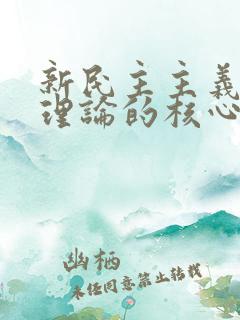 新民主主義
理論的核心
幽栖
未经同意禁止转载